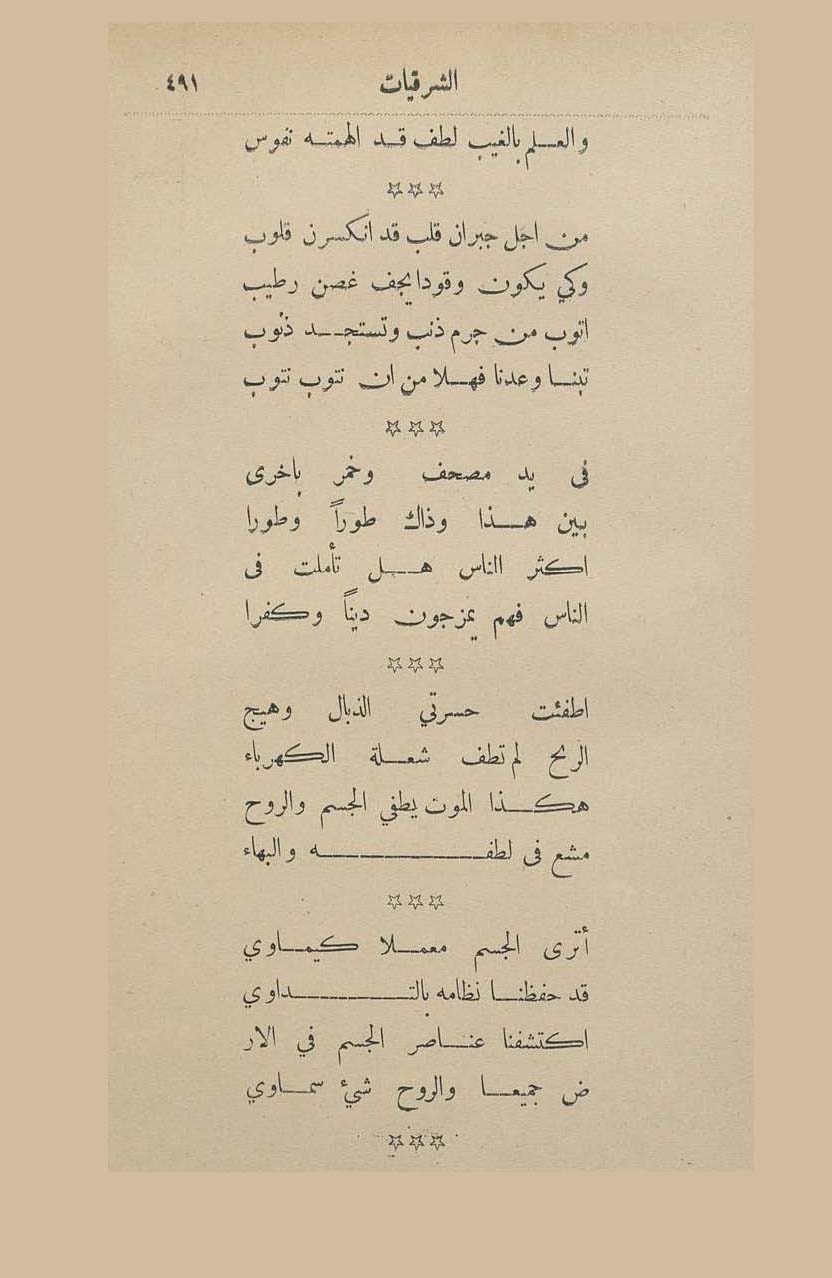 الشرقيات ٤٩١
والعلم بالغيب لطف قد الهمته نفوس
☆☆☆
من اجل جبران قلب قد انكسرن قلوب
وكي يكون وقودا يجف غصن رطيب
اتوب من جرم ذنب وتستجد ذنوب
تبنا وعدنا فهلا من ان نتوب نتوب
☆☆☆
في يد مصحف وخمر باخرى
بين هذا وذاك طوراً وطورا
اكثر الناس هل تأملت في
الناس فهم يمزجون ديناً وكفرا
☆☆☆
اطفئت حسرتي الذبال وهيج
الريح لم تطف شعلة الكهرباء
هكذا الموت يطفي الجسم والروح
مشع في لطفه والبهاء
☆☆☆
أترى الجسم معملا كيماوي
قد حفظنا نظامه بالتداوي
اكتشفنا عناصر الجسم في الار
ض جميعا والروح شيء سماوي
☆☆☆